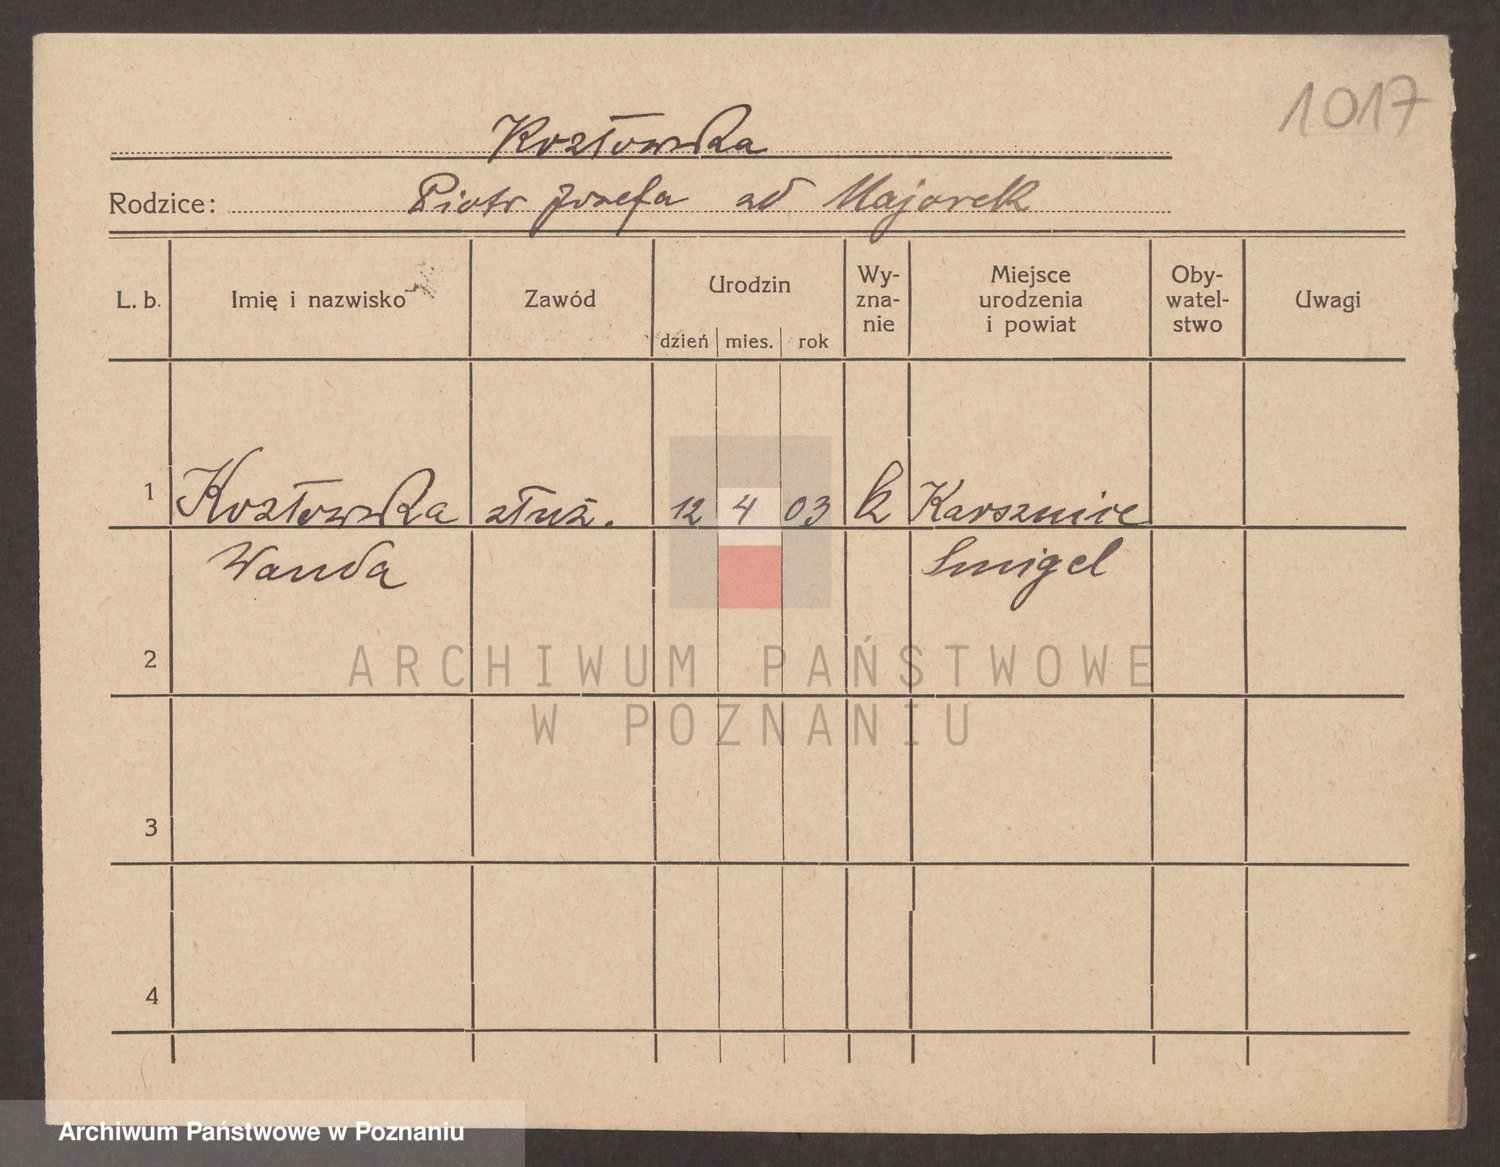 1017
Kozłowska
Rodzice: Piotr Józefa od Majorek
L. b. Imię i nazwisko Zawód Urodzin dzień mies. rok Wy-zna-nie Miejsce urodzenia i powiat Oby-watel-stwo Uwagi
1 Kozłowska służ. 12 4 03 k Karsznice
Wanda Smigel
2
3
4
ARCHIWUM PAŃSTWOWE
W POZNANIU
Archiwum Państwowe w Poznaniu